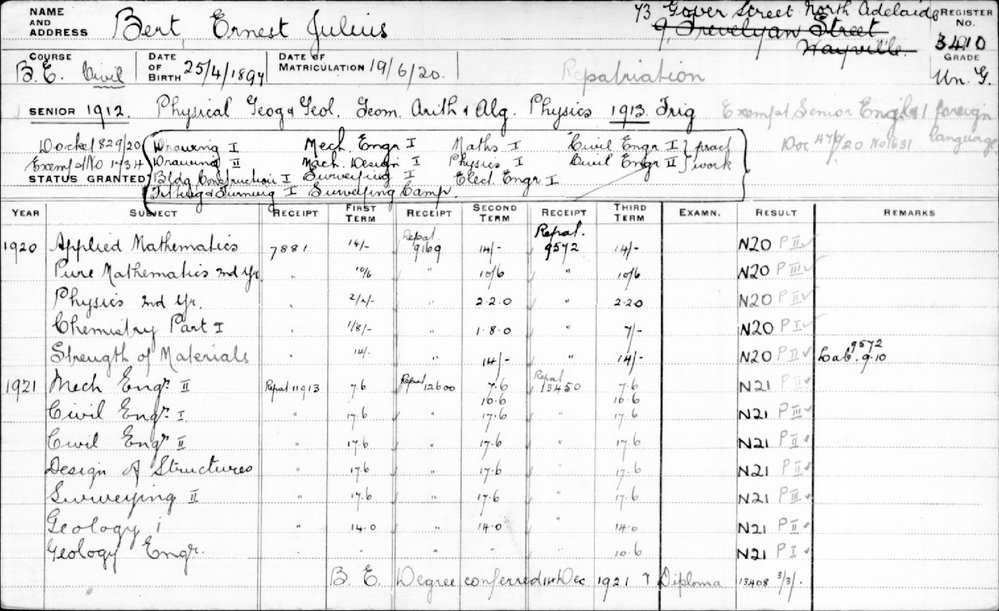 NAME AND ADDRESS Bert, Ernest Julius 73 Gover Street North Adelaide REGISTER No. 3410
9, Trevelyan Street
Wayville
COURSE B.E. Civil DATE OF BIRTH 25/4/1894 DATE OF MATRICULATION 19/6/20. Repatriation GRADE Un. G.
SENIOR 1912. Physical Geog & Geol. Geom. Arith & Alg. Physics 1913. Trig Exempt Senior Engl & 1 foreign language
Docket 829/20 Drawing I Mech. Engr I Maths. I Civil Engr I } pract Doc 20 No 631
Exempt No Drawing II Mach. Design I Physics I Civil Engr II } work
STATUS GRANTED Bldg Construction I Surveying I Elect. Engr I
Fitting & Turning I Surveying Camp.
YEAR SUBJECT RECEIPT FIRST TERM RECEIPT SECOND TERM RECEIPT THIRD TERM EXAMN. RESULT REMARKS
1920 Applied Mathematics 7881 14/- Repat. 9169 14/- Repat. 9572 14/- N20 P II ✓
Pure Mathematics 2nd Yr. " 10/6 " 10/6 " 10/6 N20 P III ✓
Physics 2nd Yr. " 2/2/- " 2.2.0 " 2.2.0 N20 P II ✓
Chemistry Part I " 1/8/- " 1.8.0 " 7/- N20 P I ✓
Strength of Materials " 14/- " 14/- " 14/- N20 P II ✓ Lab. 9572 9.10
1921 Mech Engr. II Repat 11913 7.6 Repat 12600 7.6 Repat 13450 7.6 N21 P II ✓
10.6 10.6
Civil Engr. I " 17.6 " 17.6 " 17.6 N21 P III ✓
Civil Engr. II " 17.6 " 17.6 " 17.6 N21 P II ✓
Design of Structures " 17.6 " 17.6 " 17.6 N21 P II ✓
Surveying II " 17.6 " 17.6 " 17.6 N21 P III ✓
Geology I " 14.0 " 14.0 " 14.0 N21 P II ✓
Geology Engr. " " 10.6 N21 P I ✓
B. E. Degree conferred 14th Dec 1921 & Diploma 13408 3/3/.